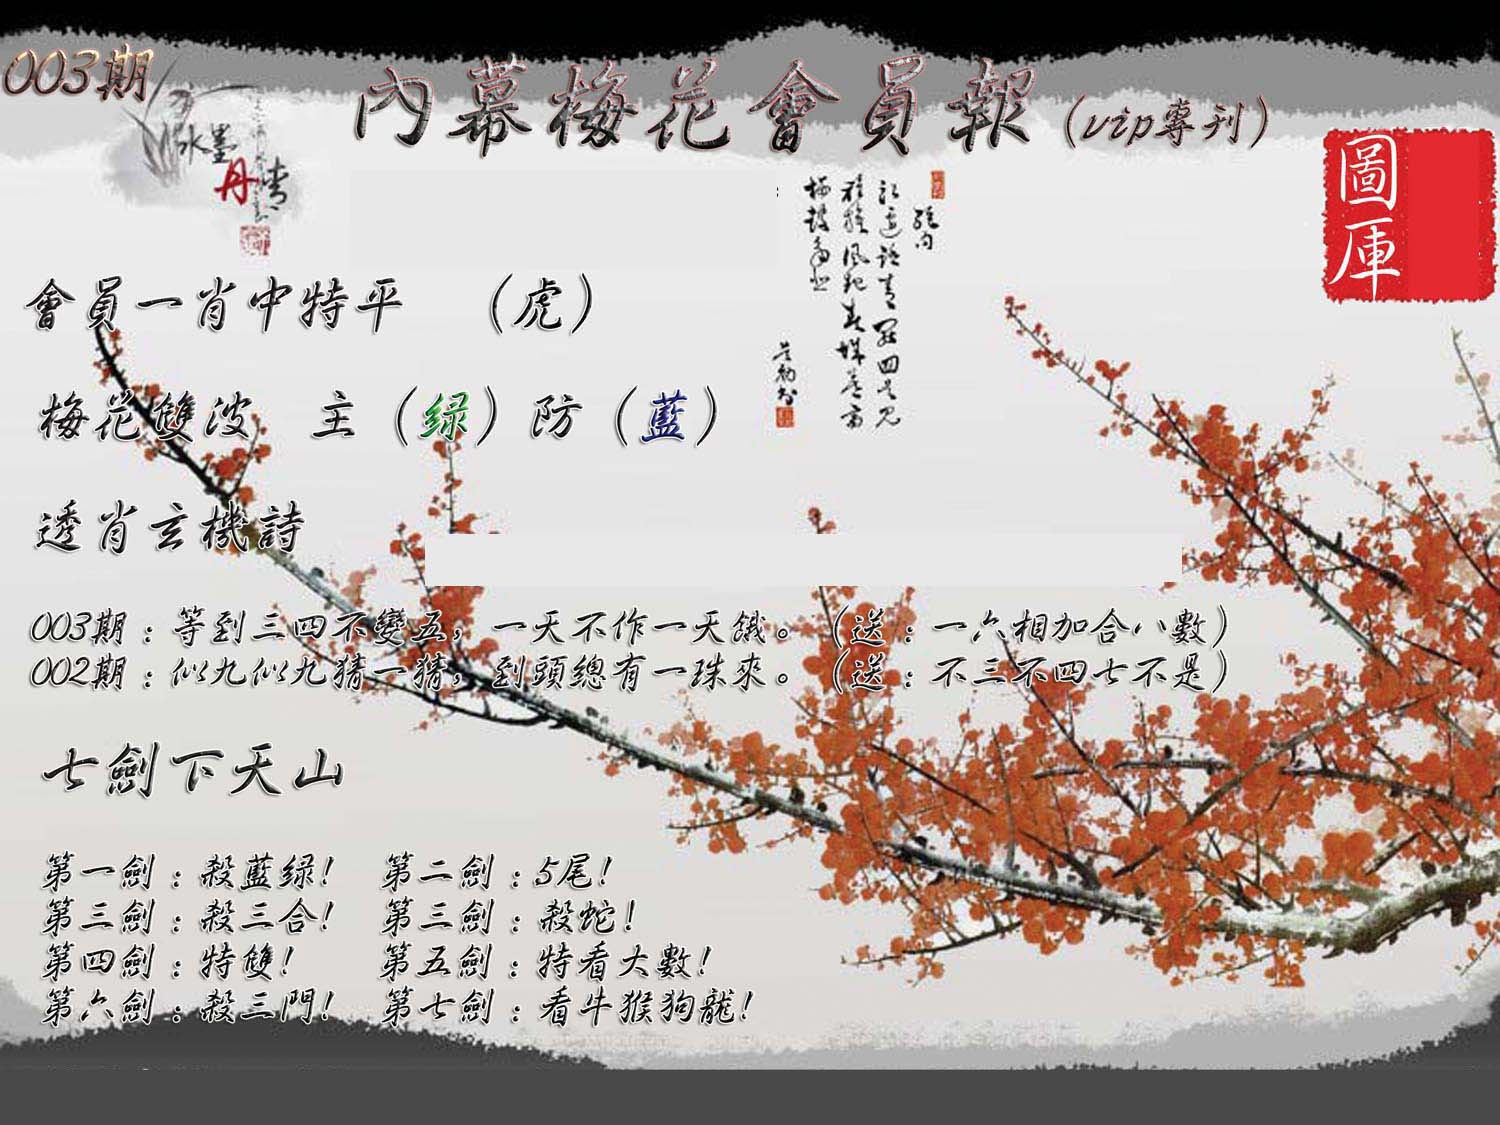 003期
內幕梅花會員報（vip專刊）
水墨
丹青
圖庫
會員一肖中特平　（虎）
梅花雙波　主（绿）防（藍）
透肖玄機詩
003期：等到三四不變五，一天不作一天餓。（送：一六相加合八數）
002期：似九似九猜一猜，到頭總有一珠來。（送：不三不四七不是）
七劍下天山
第一劍：殺藍绿！　第二劍：5尾！
第三劍：殺三合！　第三劍：殺蛇！
第四劍：特雙！　第五劍：特看大數！
第六劍：殺三門！　第七劍：看牛猴狗龍！